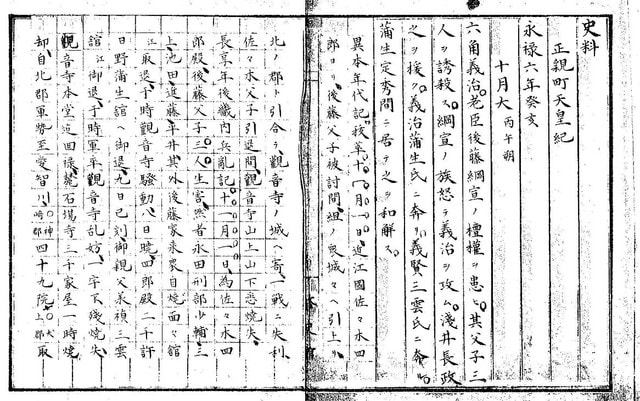 史料
正親町天皇紀
永禄六年癸亥
十月大 丙午朔
六角義治老臣後藤綱宣ノ檀權ヲ患ヒ其父子三
人ヲ誘殺ス綱宣ノ族怒テ義治ヲ攻ム淺井長政
之ヲ援ク義治蒲生氏ニ奔リ義賢三雲氏ニ奔ル
蒲生定秀間ニ居テ之ヲ和解ス
異本年代記抜萃十月一日近江國佐々木四
郎ヨリ後藤父子被討間組ノ衆城々ヘ引上リ
北ノ郡ト引合テ觀音寺ノ城ヘ寄一戰ニ失利
佐々木父子引退間觀音寺山上山下悉燒失
長享年後畿内兵亂記十月一日為佐々木四
郎殿後藤父子三人生害然者永田刑部少輔三
上池田進藤平井其外後藤家来衆自燒面々舘
江取退于時觀音寺騒動八日曉四郎殿二千許
日野蒲生舘ヘ御退九日巳刻御親父義禎三雲
舘江御退于時軍卒觀音寺乱妨一宇不殘燒失
觀音寺本堂迠回禄麓石場寺三千家屋一時燒
却自北郡軍勢至愛智川神崎郡四十九院犬上郡取